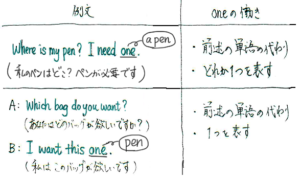 例文
oneの働き
a pen
Where is my pen? I need one.
(私のペンはどこ? ペンが必要です)
・前述の単語の代わり
・どれか1つを表す
A: Which bag do you want?
(あなたはどのバッグが欲しいですか?)
pen
B: I want this one.
(私は このバッグが欲しいです)
・前述の単語の代わり
・1つを表す